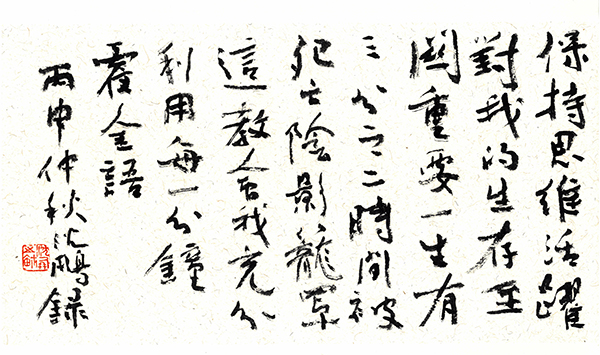 保持思維活躍
對我的生存至
關重要一生有
三分之二時間被
死亡陰影籠罩
這教會我充分
利用每一分鐘
霍金語
丙申仲秋沈鵬錄